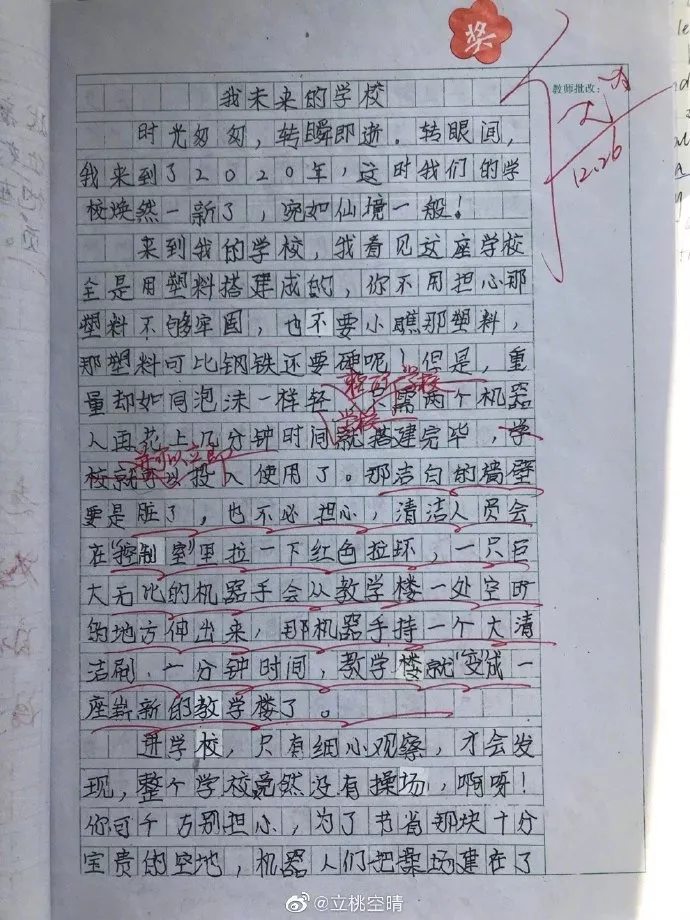 奖
教师批改：
12.26
我未来的学校
时光匆匆，转瞬即逝．转眼间，
我来到了2020年，这时我们的学
校焕然一新了，宛如仙境一般！
来到我的学校，我看见这座学校
全是用塑料搭建成的，你不用担心那
塑料不够牢固，也不要小瞧那塑料，
那塑料可比钢铁还要硬呢！但是，重
量却如同泡沫一样轻 需两个机器
学校
人再花上几分钟时间就搭建完毕，学
并可以立即
校就可以投入使用了。那洁白的墙壁
要是脏了，也不必担心，清洁人员会
在“控制室”里拉一下红色拉环，一只巨
大无比的机器手会从教学楼一处空旷
的地方伸出来，那机器手持一个大清
洁刷，一分钟时间，教学楼就“变”成一
座崭新的教学楼了。
进学校，只有细心观察，才会发
现，整个学校竟然没有操场，啊呀！
你可千万别担心，为了节省那块十分
宝贵的空地，机器人们把操场建在了
@立桃空晴